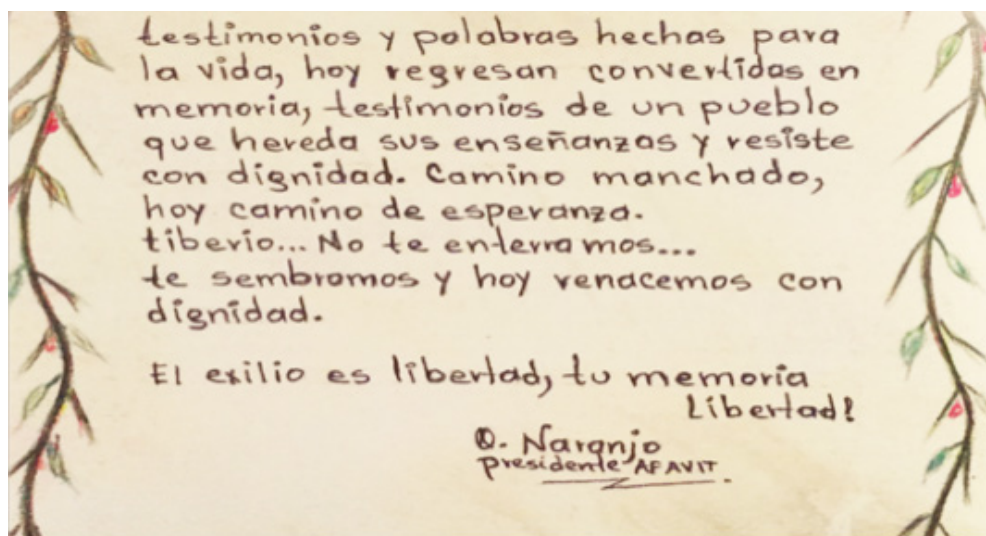 testimonios y palabras hechas para
la vida, hoy regresan convertidas en
memoria, testimonios de un pueblo
que hereda sus enseñanzas y resiste
con dignidad. Camino manchado,
hoy camino de esperanza.
tiberio... No te enterramos...
te sembramos y hoy renacemos con
dignidad.
El exilio es libertad, tu memoria
Libertad!
O. Naranjo
presidente AFAVIT